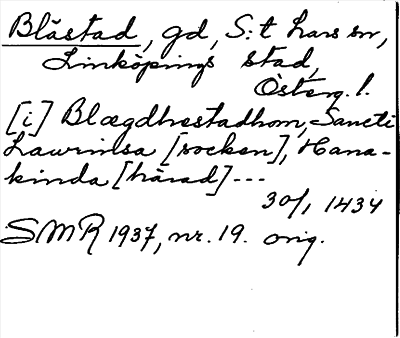 Blästad, gd, S:t Lars sn,
Linköpings stad,
Österg. l.
[i] Blægdhestadhom, Sancti
Laurinsa [socken], Hana-
kinda [härad] ---
30/1 1434
SMR 1937, nr. 19. orig.